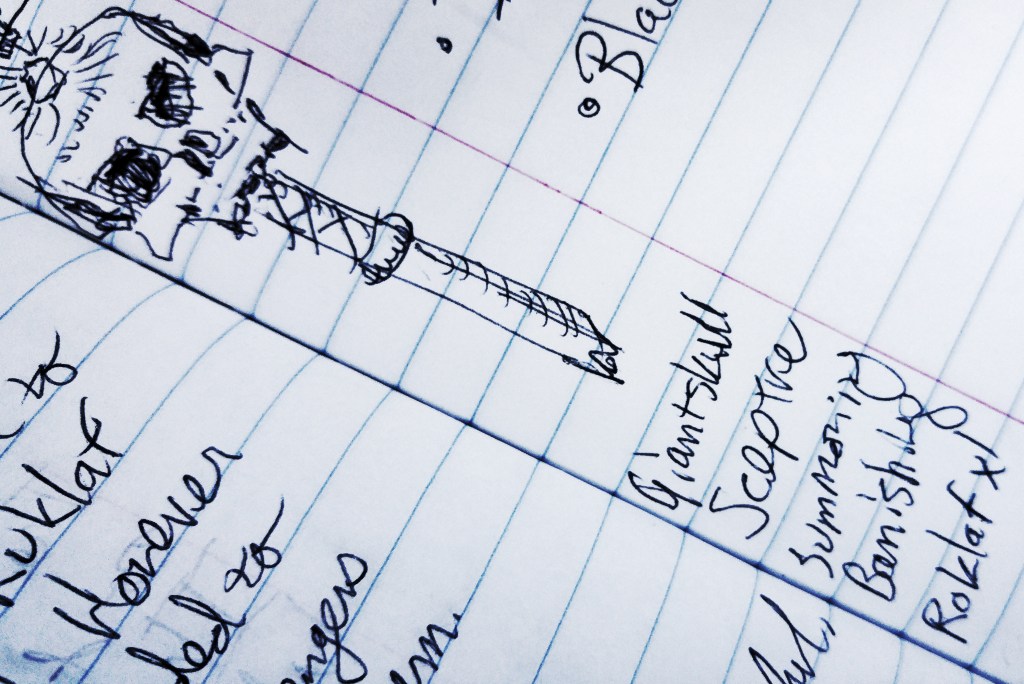 Bla
Giantskull
Sceptre
Summoning
Banishing
Roklaf x1
to
Ruklaf
However
ded to
ngers
em.